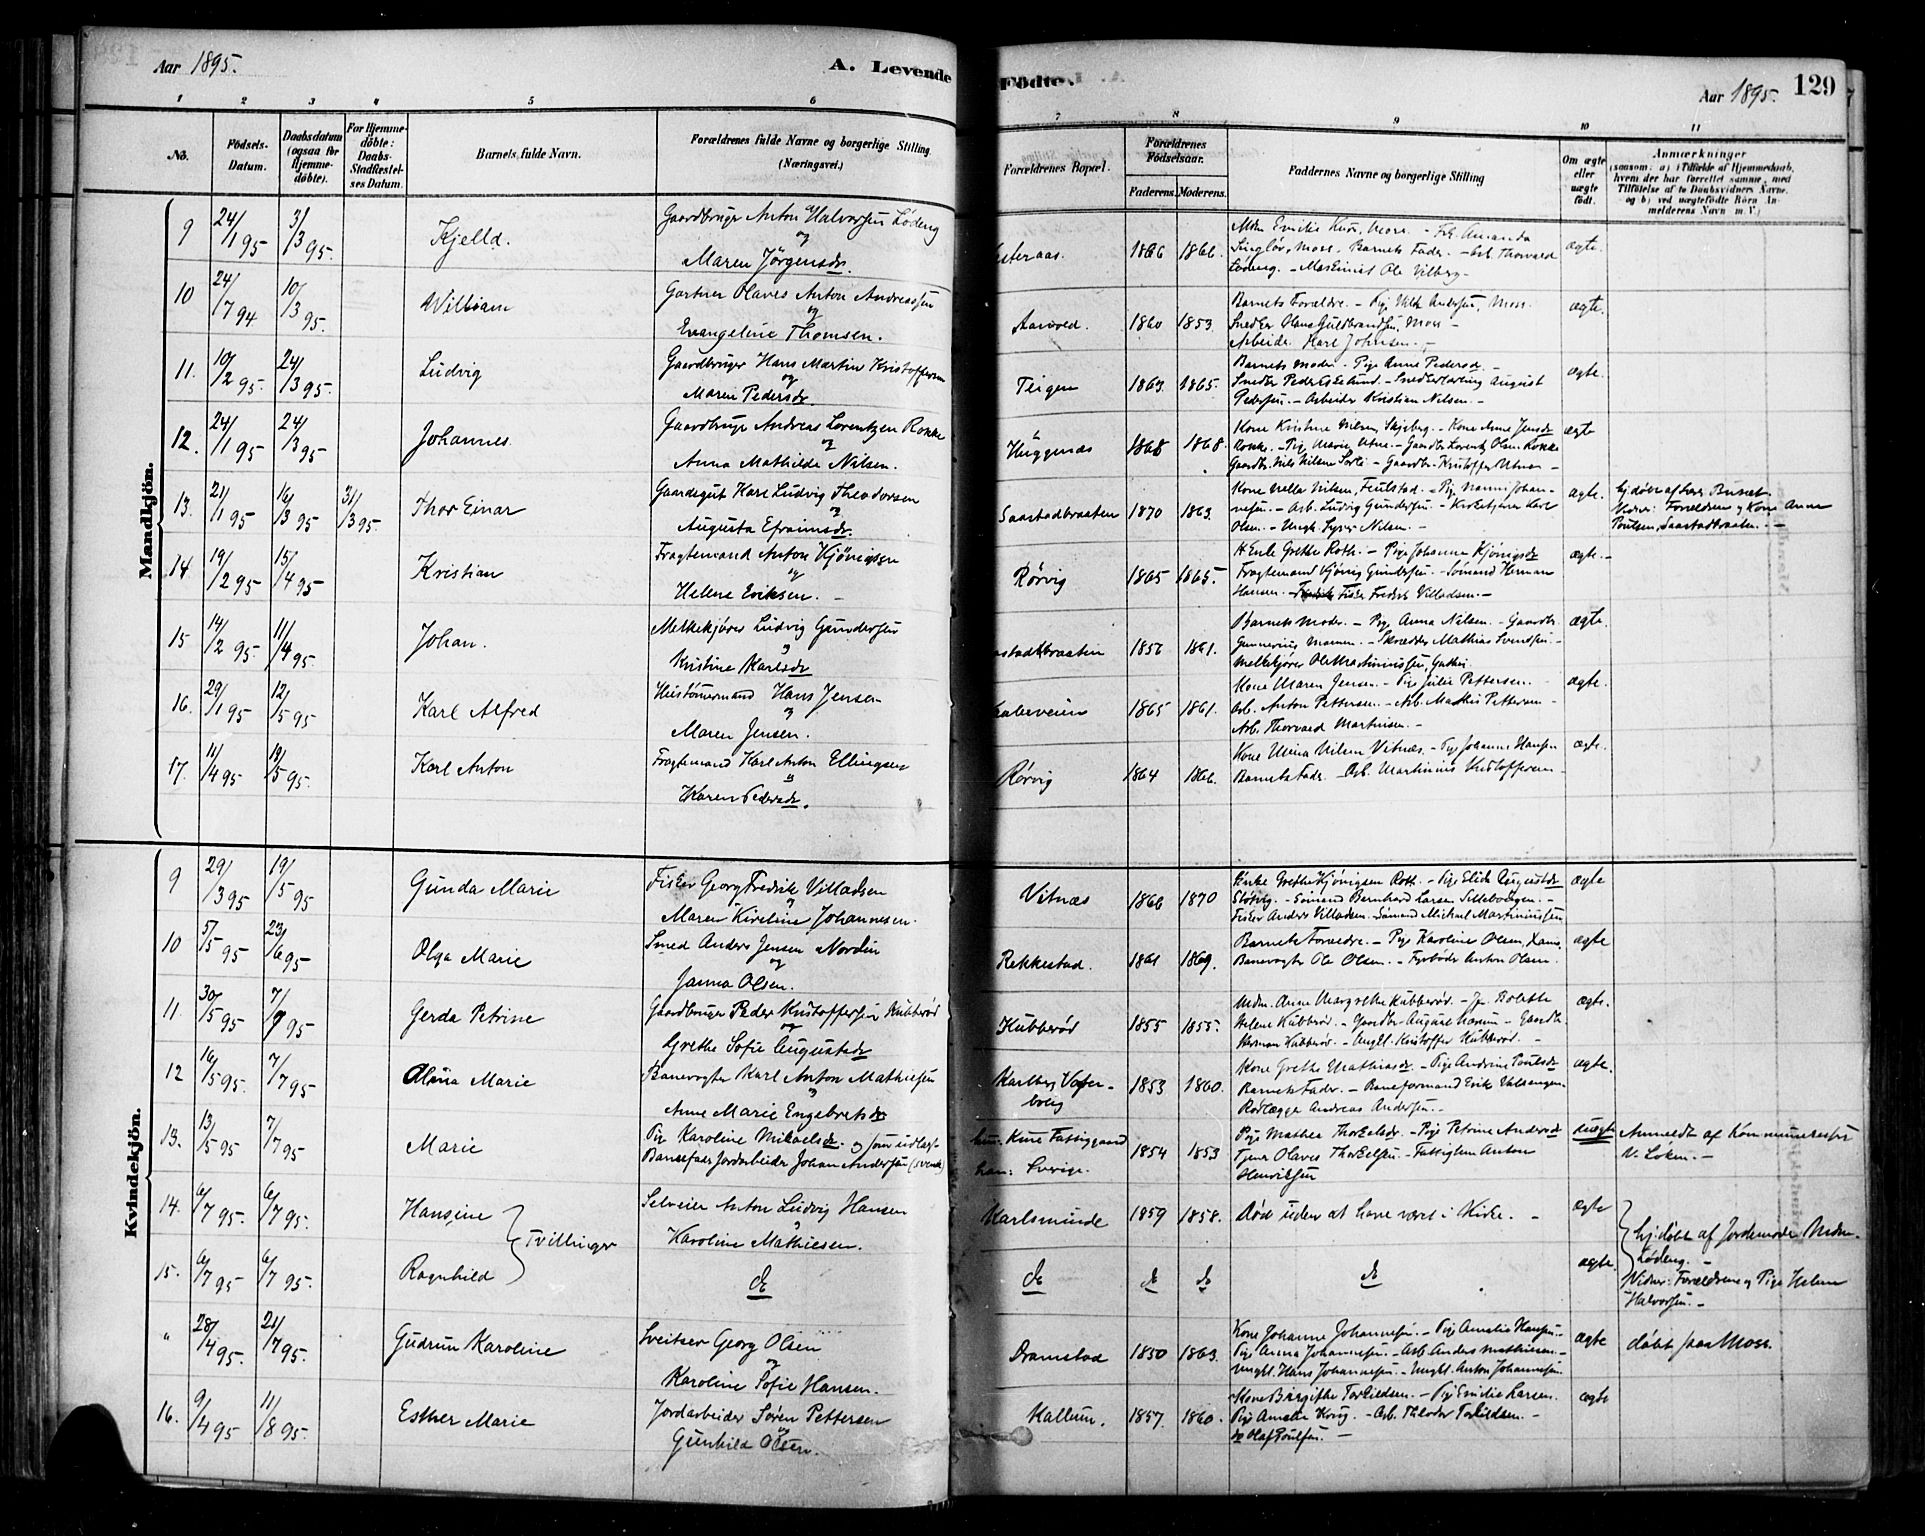 Aar 1895.
A. Levende
Födte.
Aar 1895.
129
1 2 3 4 5 6
7 8 9 10 11
No.
Födsels-Datum.
Daabsdatum (ogsaa for Hjemmedöbte).
For Hjemmedöbte: Daabs-Stadfæstelses Datum.
Barnets fulde Navn.
Forældrenes fulde Navne og borgerlige Stilling. (Næringsvei.)
Forældrenes Bopæl.
Forældrenes Födselsaar.
Faderens. Moderens.
Faddernes Navne og borgerlige Stilling
Om ægte eller uægte födt.
Anmærkninger
(saasom: a) i Tilfælde af Hjemmedaab, hvem der har forrettet samme, med Tilföielse af to Daabsvidners Navne, og b) ved uægtefödte Börn Anmelderens Navn m. V.)
Mandkjön.
9 24/1 95 3/3 95. Kjelld. Gaardbruger Anton Halvorsen Lödeng og Maren Jörgensdr. 1866 1866. Ægte.
Lödeng. – Maskinist Ole Vilberg –
10 24/7 94 10/3 95. William Gartner Olaves Anton Andreassen og Evangeline Thomsen. Aarved. 1860 1853. Ægte.
Barnets Forældre. – Pige Andersen, Moss.
Snedker Hans Guldbrandsen, Moss –
Arbeider Karl Johnsen. –
11. 10/2 95. 24/3 95. Ludvig Gaardbruger Hans Martin Kristoffersen og Maren Pedersdr. Teigen 1863 1865. Ægte.
Barnets Moder. – Pige Anne Pedersdr. –
Snedker Peder Eselund. – Snedkerlærling August
Pedersen. – Arbeider Kristian Nilsen. –
12. 24/1 95 24/3 95 Johannes. Gaardbruger Andreas Lorentzen Rokke og Anna Mathilde Nilsen. Huggenæs 1868 1868. Ægte
Kone Kristine Nilsen, Skjeberg. – Kone Anne Jensdr
Rokke. – Pige Marie Utne. – Gaardbr. Lorentz Olsen Rokke
Gaardbr. Nils Nilsen – Gaardbr. Kristoffer
13. 21/1 95 16/3 95 31/3 95 Thor Einar Gaardsgut Karl Ludvig Theodorsen og Augusta Efraimsdr. Saastadbraaten 1870 1863. Ægte.
Kone Nilsen, – Pige Nanni Johannesen. – Arb. Ludvig Gundersen – Kirketjener Karl
Olsen. – Ungk. Nilsen. –
hj. döbt af
Vidner: Forældrene og Kone Anna
Poulsen, Saastadbraaten. –
14 19/2 95 15/4 95 Kristian Fragtemand Anton Kjönigsen og Helene Eriksen. – Rörvig 1865 1865. Ægte. –
Enke Grethe Roth. – Pige Johanne Kjönigsdr
Fragtemand Kjönig Gundersen. – Sömand Herman
Hansen. – Fisker Fredrik Villadsen. –
15 14/2 95. 11/4 95 Johan. Melkekjörer Ludvig Gundersen og Kristine Karlsdr 1856 1861. Ægte.
Barnets Moder. – Pige Anna Nilsen. – Gaardbr.
Gunnerius – Skrædder Mathias Svendsen. –
Melkekjörer Ole Martiniussen,
16. 29/1 95 12/5 95 Karl Alfred Hustömmermand Hans Jensen og Maren Jensen. 1865 1861. Ægte.
Kone Maren Jensen. – Pige Julie Pettersen. –
Arb. Anton Pettersen. – Arb. Pettersen –
Arb. Thorvald Martinsen. –
17. 11/4 95 19/5 95 Karl Anton Fragtemand Karl Anton Ellingsen og Karen Pedersdr. Rörvig 1864 1866. Ægte.
Kone Nilsen Vitnæs. – Pige Johanne Hansen
Barnets Fader. – Arb. Martinius Kristoffersen –
Kvindekjön.
9 29/3 95 19/5 95 Gunda Marie Fisker Georg Fredrik Villadsen og Maren Kirstine Johannesen. Vitnæs 1866 1870 Ægte
Enke Grethe Kjönigsen Roth. – Pige Elida Augustdr
– Sömand Bernhard Larsen –
Fisker Anders Villadsen. – Sömand Mickael Martiniussen
10 5/5 95 23/6 95 Olga Marie Smed Anders Jensen Nordin og Janna Olsen. Rekkestad. 1861 1869. Ægte
Barnets Forældre. – Pige Karoline Olsen,
Banevogter Ole Olsen. – Fyrböder Anton Olsen.
11. 30/5 95 7/7 95 Gerda Petrine Gaardbruger Peder Kristoffersen Kubberöd og Grethe Sofie Augustsdr Kubberöd 1855 1855. Ægte.
Mdm. Anne Margrethe Kubberöd. – Bolette
Helene Kubberöd. – Gaardbr. August – Gaardbr.
Herman Kubberöd. – Ungk. Kristoffer Kubberöd. –
12 16/5 95. 7/7 95 Alma Marie Banevogter Karl Anton Mathiesen og Anne Marie Engebretsdr Karlberg Vogterbolig 1853 1860. Ægte.
Kone Grethe Mathiasdr. – Pige Andrine Poulsdr
Barnets Fader. – Baneformand Erik
Rodlægger Andreas Andersen. –
13. 13/5 95 7/7 95 Marie Pige Karoline Mikaelsdr. og som udlagt Barnefader Jordarbeider Johan Andersen (Svensk) hun: Kure Fattiggaard han: Sverige. 1854 1853 Uægte
Pige Mathea Thorkelsdr. – Pige Petrine Andersdr
Tjener Olaves Thorkelsen. – Fattiglem Anton
Henriksen
Anmeldt af
V. Löken. –
14. 6/7 95. 6/7 95. Hansine Selveier Anton Ludvig Hansen og Karoline Mathiesen. Karlsminde 1859 1858. Död uden at have været i Kirke. – Ægte
Tvillinger
15. 6/7 95 6/7 95. Ragnhild do do do do do Ægte.
hj. döbt af Jordemoder Mdm.
Lödeng. –
Vidner: Forældrene og Pige Helene
Halvorsen. –
" 28/4 95. 21/7 95. Gudrun Karoline Sveitser Georg Olsen og Karoline Sofie Hansen. Dramstad 1850 1863. Ægte döbt paa Moss.
Kone Johanne Johannesen. – Pige Amalie Hansen. –
Pige Anna Johannesen. – Arb. Anders Mathiesen. –
Ungk. Hans Johannesen. – Ungk. Anton Johannesen.
16. 9/4 95 11/8 95. Esther Marie Jordarbeider Sören Pettersen og Gunhild Olsen. Kallum. 1857. 1860. Ægte
Kone Birgithe Torkildsen. – Pige Emilie Larsen.
Pige Amalie – Arb. Theodor Torkildsen. –
do Olaf Poulsen. –